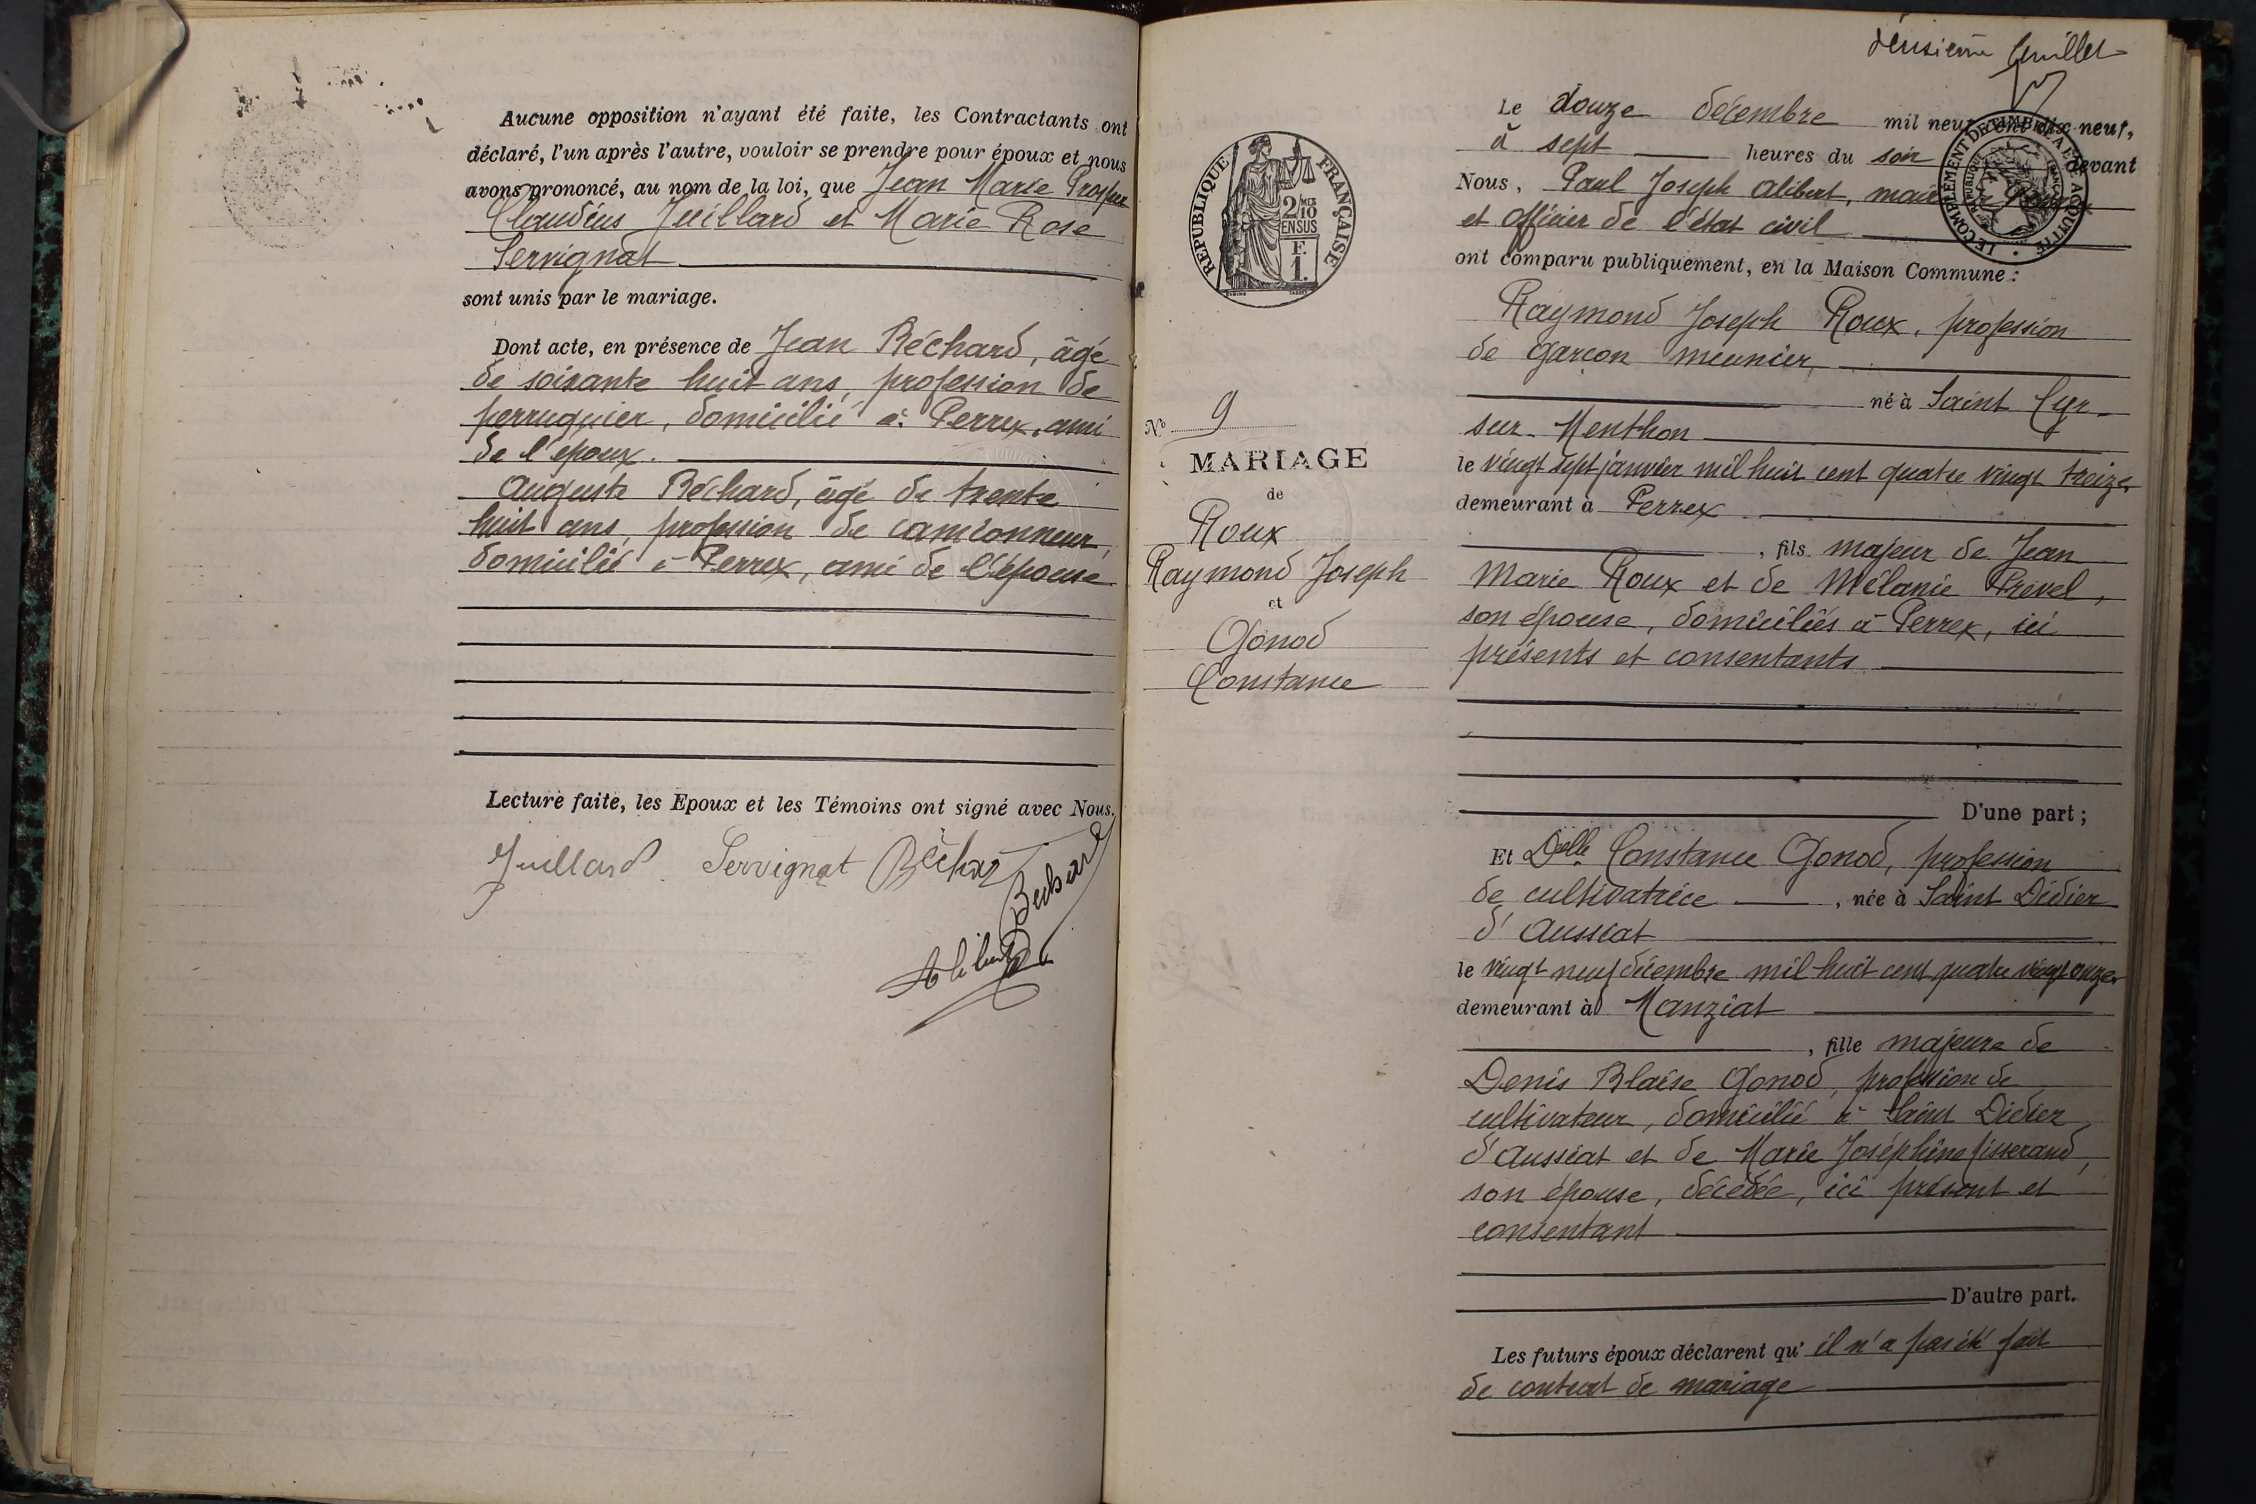 Aucune opposition n'ayant été faite, les Contractants ont
déclaré, l'un après l'autre, vouloir se prendre pour époux et nous
avons prononcé, au nom de la loi, que Jean Marie Prosper
Claudius Juillard et Marie Rose
Servignat
sont unis par le mariage.
Dont acte, en présence de Jean Béchard, âgé
de soixante huit ans, profession de
perruquier, domicilié à Perrex, ami
de l'époux.
Auguste Béchard, âgé de trente
huit ans, profession de camionneur,
domicilié à Perrex, ami de l'épouse
Lecture faite, les Epoux et les Témoins ont signé avec Nous.
Juillard Servignat Béchard
Bechard
Alibert
RÉPUBLIQUE FRANÇAISE
2/10 EN SUS
F.
1.
N° 9
MARIAGE
de
Roux
Raymond Joseph
et
Gonod
Constance
deusième feuillet
Le douze décembre mil neuf cent dix-neuf,
à sept heures du soir devant
Nous, Paul Joseph Alibert, maire de Perrex
et officier de l'état civil
LE COMPLÉMENT DE TIMBRE A ÉTÉ ACQUITTÉ
ont comparu publiquement, en la Maison Commune :
Raymond Joseph Roux, profession
de garçon meunier,
né à Saint Cyr-
sur-Menthon
le vingt sept janvier mil huit cent quatre vingt treize
demeurant à Perrex
, fils majeur de Jean
Marie Roux et de Mélanie Prevel,
son épouse, domiciliés à Perrex, ici
présents et consentants
D'une part ;
Et Delle Constance Gonod, profession
de cultivatrice , née à Saint Didier
d'Aussiat
le vingt neuf décembre mil huit cent quatre vingt onze
demeurant à Manziat
, fille majeure de
Denis Blaise Gonod, profession de
cultivateur, domicilié à Saint Didier
d'Aussiat et de Marie Joséphine Tisserand,
son épouse, décédée, ici présent et
consentant
D'autre part.
Les futurs époux déclarent qu' il n'a pas été fait
de contrat de mariage